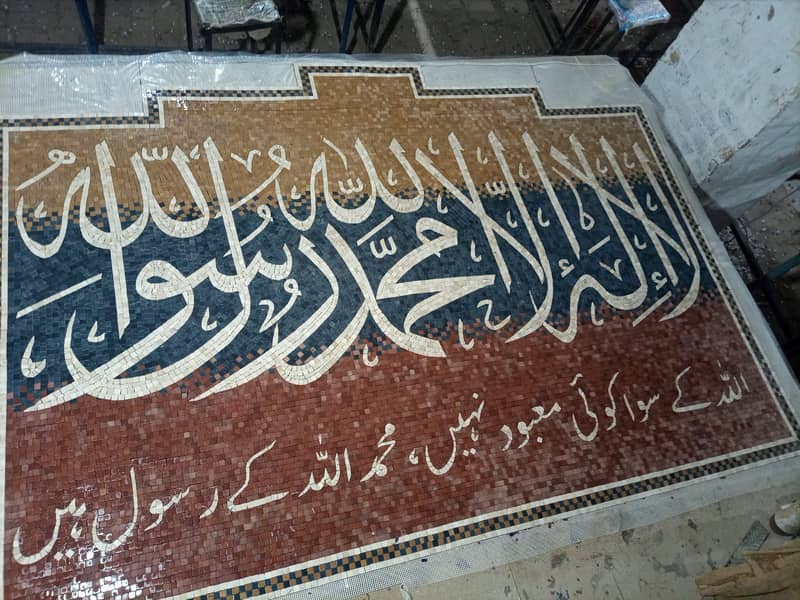 لا إله إلا الله محمد رسول الله
اللہ کے سوا کوئی معبود نہیں، محمد اللہ کے رسول ہیں